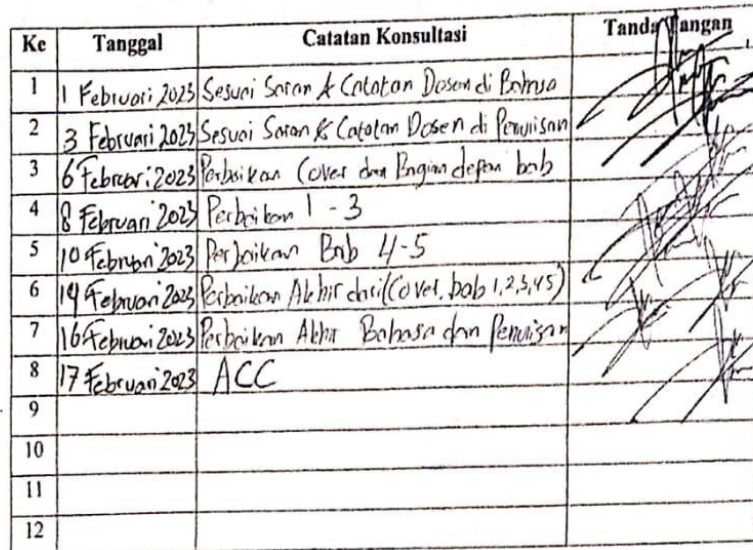 Ke Tanggal Catatan Konsultasi Tanda Tangan
1 1 Februari 2023 Sesuai Saran & Catatan Dosen di Bahasa
2 3 Februari 2023 Sesuai Saran & Catatan Dosen di Penulisan
3 6 Februari 2023 Perbaikan Cover dan Bagian depan bab
4 8 Februari 2023 Perbaikan 1 - 3
5 10 Februari 2023 Perbaikan Bab 4-5
6 14 Februari 2023 Perbaikan Akhir dari (Cover, bab 1,2,3,4,5)
7 16 Februari 2023 Perbaikan Akhir Bahasa dan Penulisan
8 17 Februari 2023 ACC
9
10
11
12